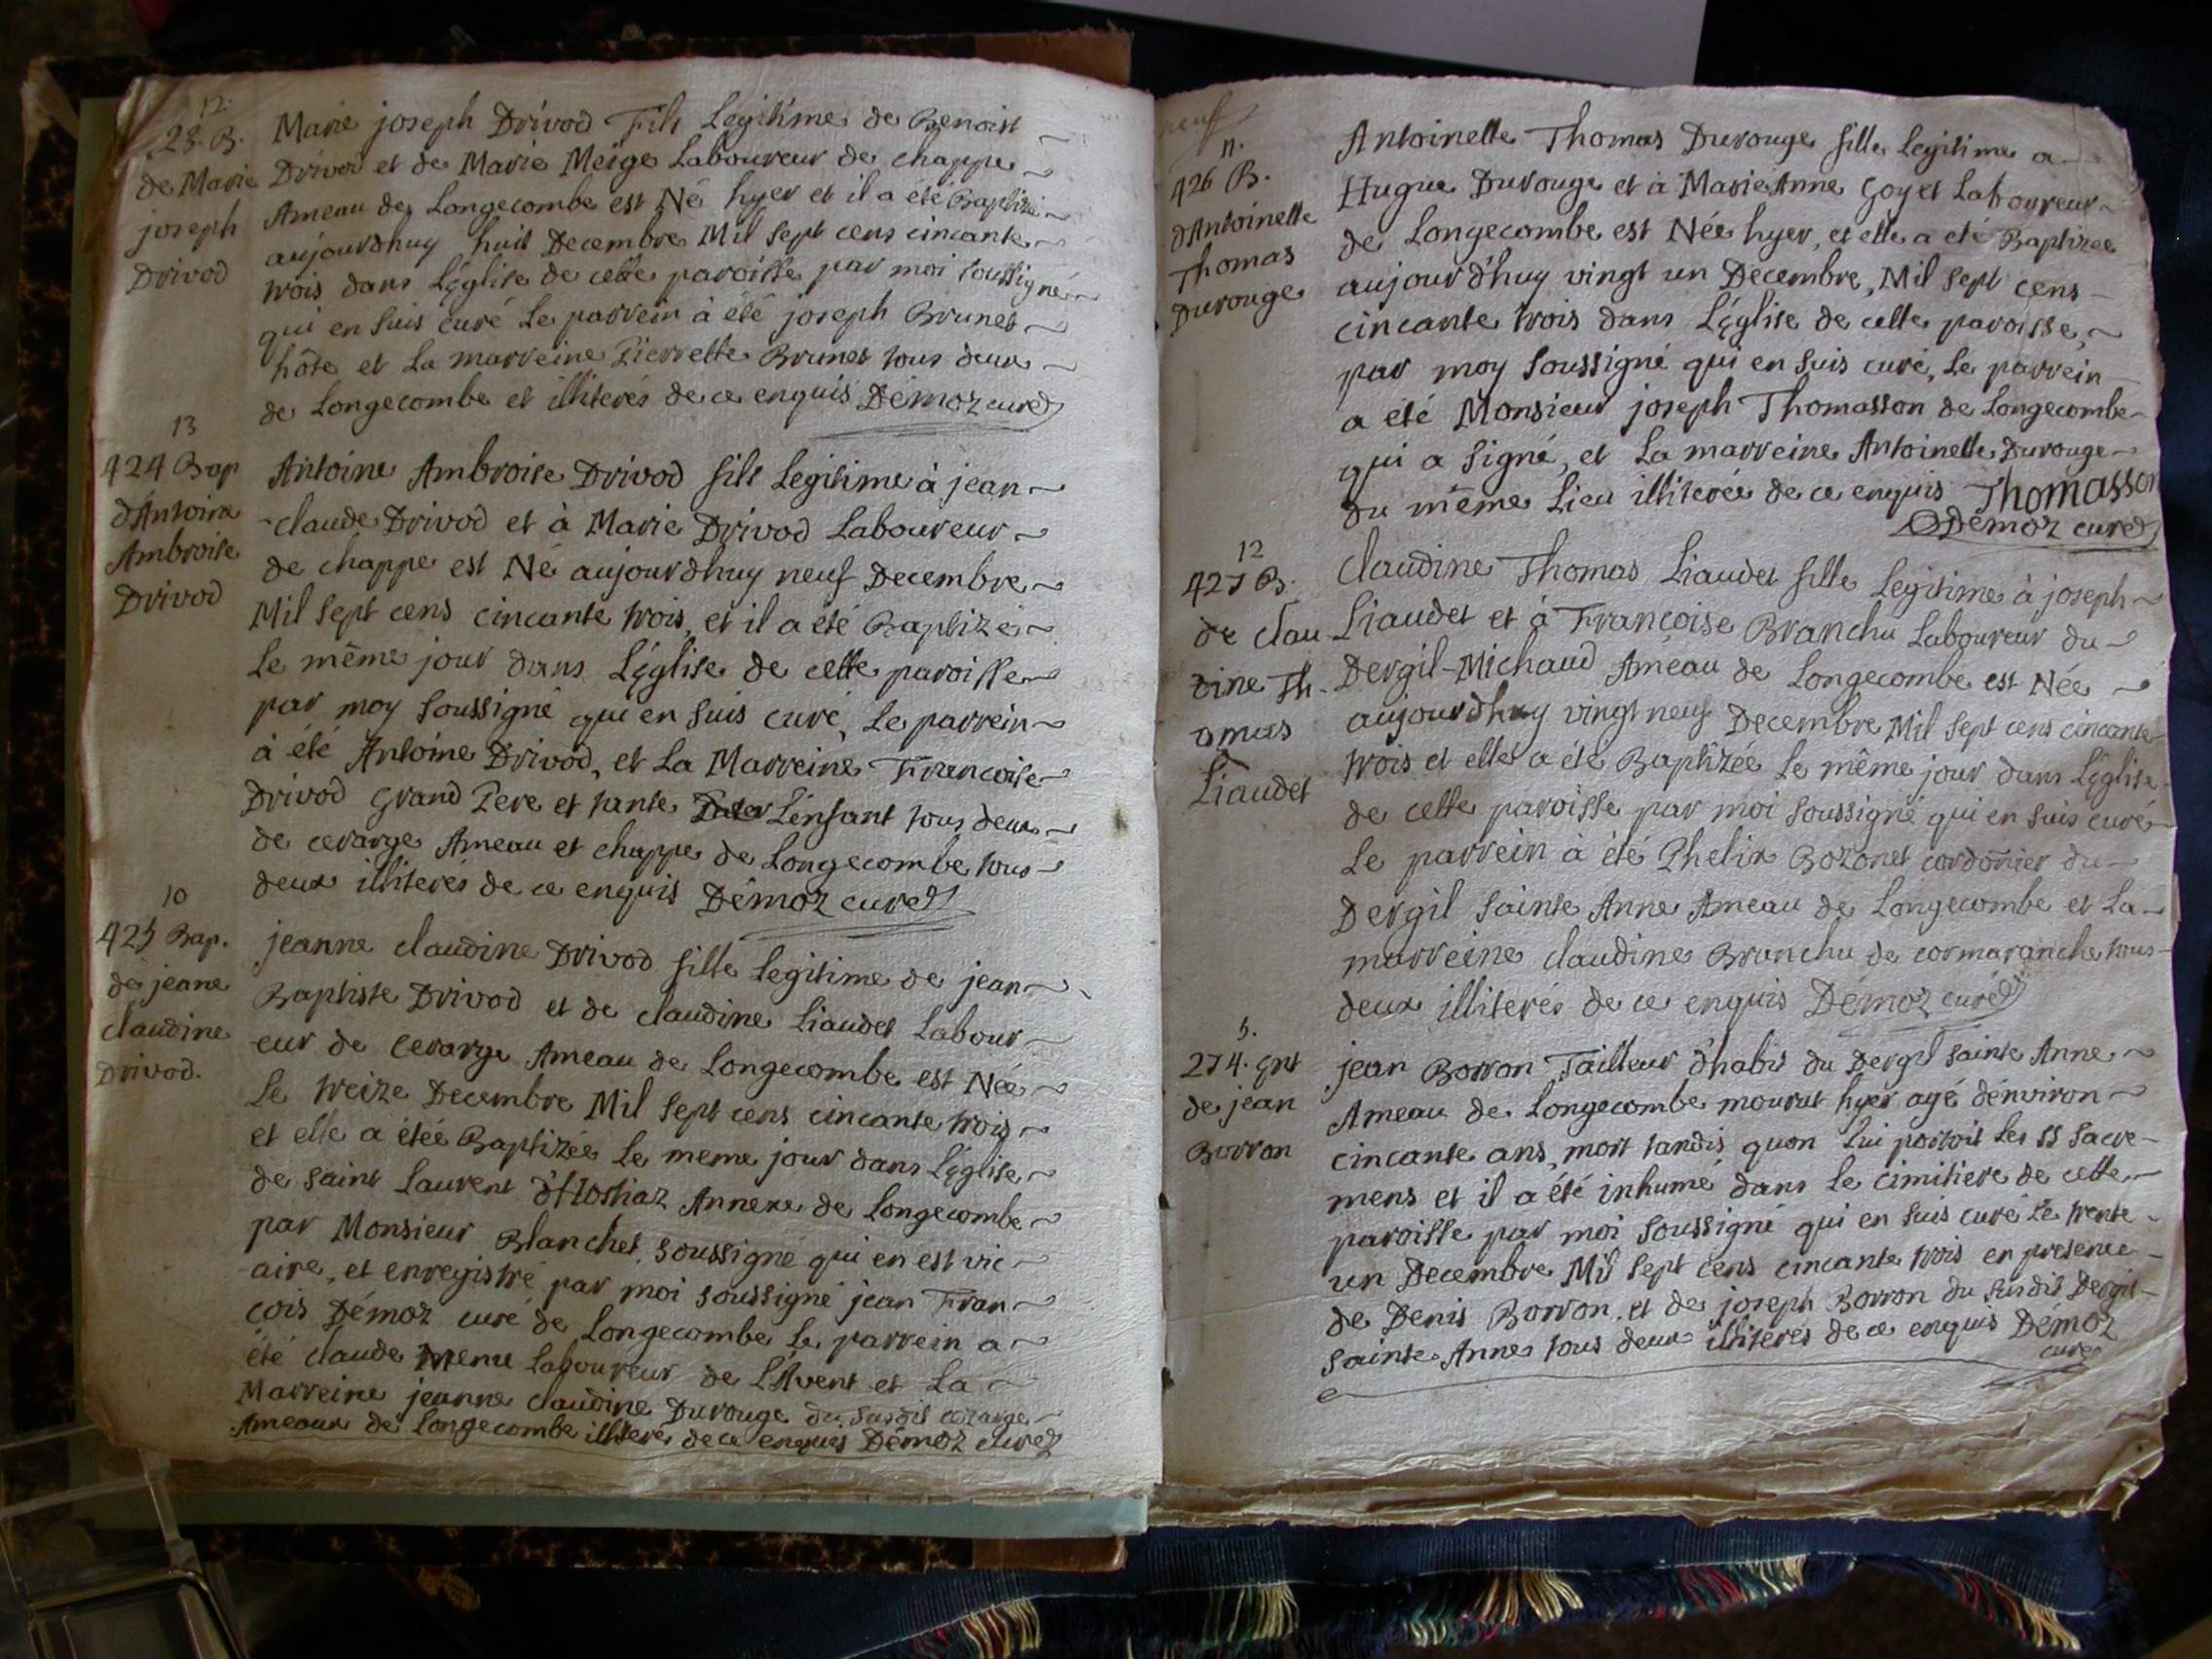 12.
23. B.
de Marie
joseph
Drivod
Marie joseph Drivod Fils Legitime de Benoist
Drivod et de Marie Meige Laboureur de chappe
Ameau de Longecombe est Né hyer et il a été Baptizé
aujourdhuy huit Decembre Mil sept cens cincante
trois dans L'église de cette paroisse par moi soussigné
qui en suis curé Le parrein à été joseph Brunet
hôte et La marreine Pierrette Brunet tous deux
de Longecombe et illiterés de ce enquis Démoz curé
13
424 Bap
d'Antoine
Ambroise
Drivod
Antoine Ambroise Drivod fils Legitime à jean
claude Drivod et à Marie Drivod Laboureur
de chappe est Né aujourdhuy neuf Decembre
Mil sept cens cincante trois, et il a été Baptizé
Le même jour dans L'église de cette paroisse
par moy soussigné qui en suis curé, Le parrein
à été Antoine Drivod, et La Marreine Francoise
Drivod Grand Pere et tante L'enfant tous deux
de cerarge Ameau et chappe de Longecombe tous
deux illiterés de ce enquis Démoz curé
10
425 Bap.
de jeane
claudine
Drivod.
jeanne claudine Drivod fille legitime de jean
Baptiste Drivod et de claudine Liaudet Labour
eur de cerarge Ameau de Longecombe est Née
Le treize Decembre Mil sept cens cincante trois
et elle a étée Baptizée Le meme jour dans L'église
de saint Laurent d'Hostiaz Annexe de Longecombe
par Monsieur Blanchet soussigné qui en est vic
aire, et enregistré par moi soussigné jean Fran
cois Démoz curé de Longecombe Le parrein a
été claude Laboureur de L'Avent et La
Marreine jeanne claudine Durouge du susdit cerarge
Ameaux de Longecombe illiterés de ce enquis Démoz curé
neuf
11.
426 B.
d'Antoinette
Thomas
Durouge
Antoinette Thomas Durouge fille Legitime a
Hugue Durouge et à Marie Anne Goyet Laboureur
de Longecombe est Née hyer, et elle a eté Baptizee
aujourd'huy vingt un Decembre, Mil sept cens
cincante trois dans L'église de cette paroisse,
par moy soussigné qui en suis curé, Le parrein
a été Monsieur joseph Thomasson de Longecombe
qui a signé, et La marreine Antoinette Durouge
du même Lieu illiterée de ce enquis Thomasson
Démoz curé
12
427 B.
de clau
dine Th.
omas
Liaudet
claudine Thomas Liaudet fille Legitime à joseph
Liaudet et à Françoise Branchu Laboureur du
Dergil-Michaud Améau de Longecombe est Née
aujourdhuy vingt neuf Decembre Mil sept cens cincante
trois et elle a été Baptizée Le même jour dans L'église
de cette paroisse par moi soussigné qui en suis curé
Le parrein à été Phelix Bozonet cordonier du
Dergil sainte Anne Ameau de Longecombe et La
marreine claudine Branchu de cormaranche tous
deux illiterés de ce enquis Démoz curé
5.
274. Ent
de jean
Borron
jean Borron Tailleur d'habit du Dergil sainte Anne
Ameau de Longecombe mourut hyer agé d'environ
cincante ans, mort tandis quon Lui portoit Les SS sacre
mens et il a été inhumé dans Le cimitiere de cette
paroisse par moi soussigné qui en suis curé Le trente
un Decembre Mil sept cens cincante trois en presence
de Denis Borron. et de joseph Borron du susdit Dergil
sainte Anne tous deux illiterés de ce enquis Démoz
curé